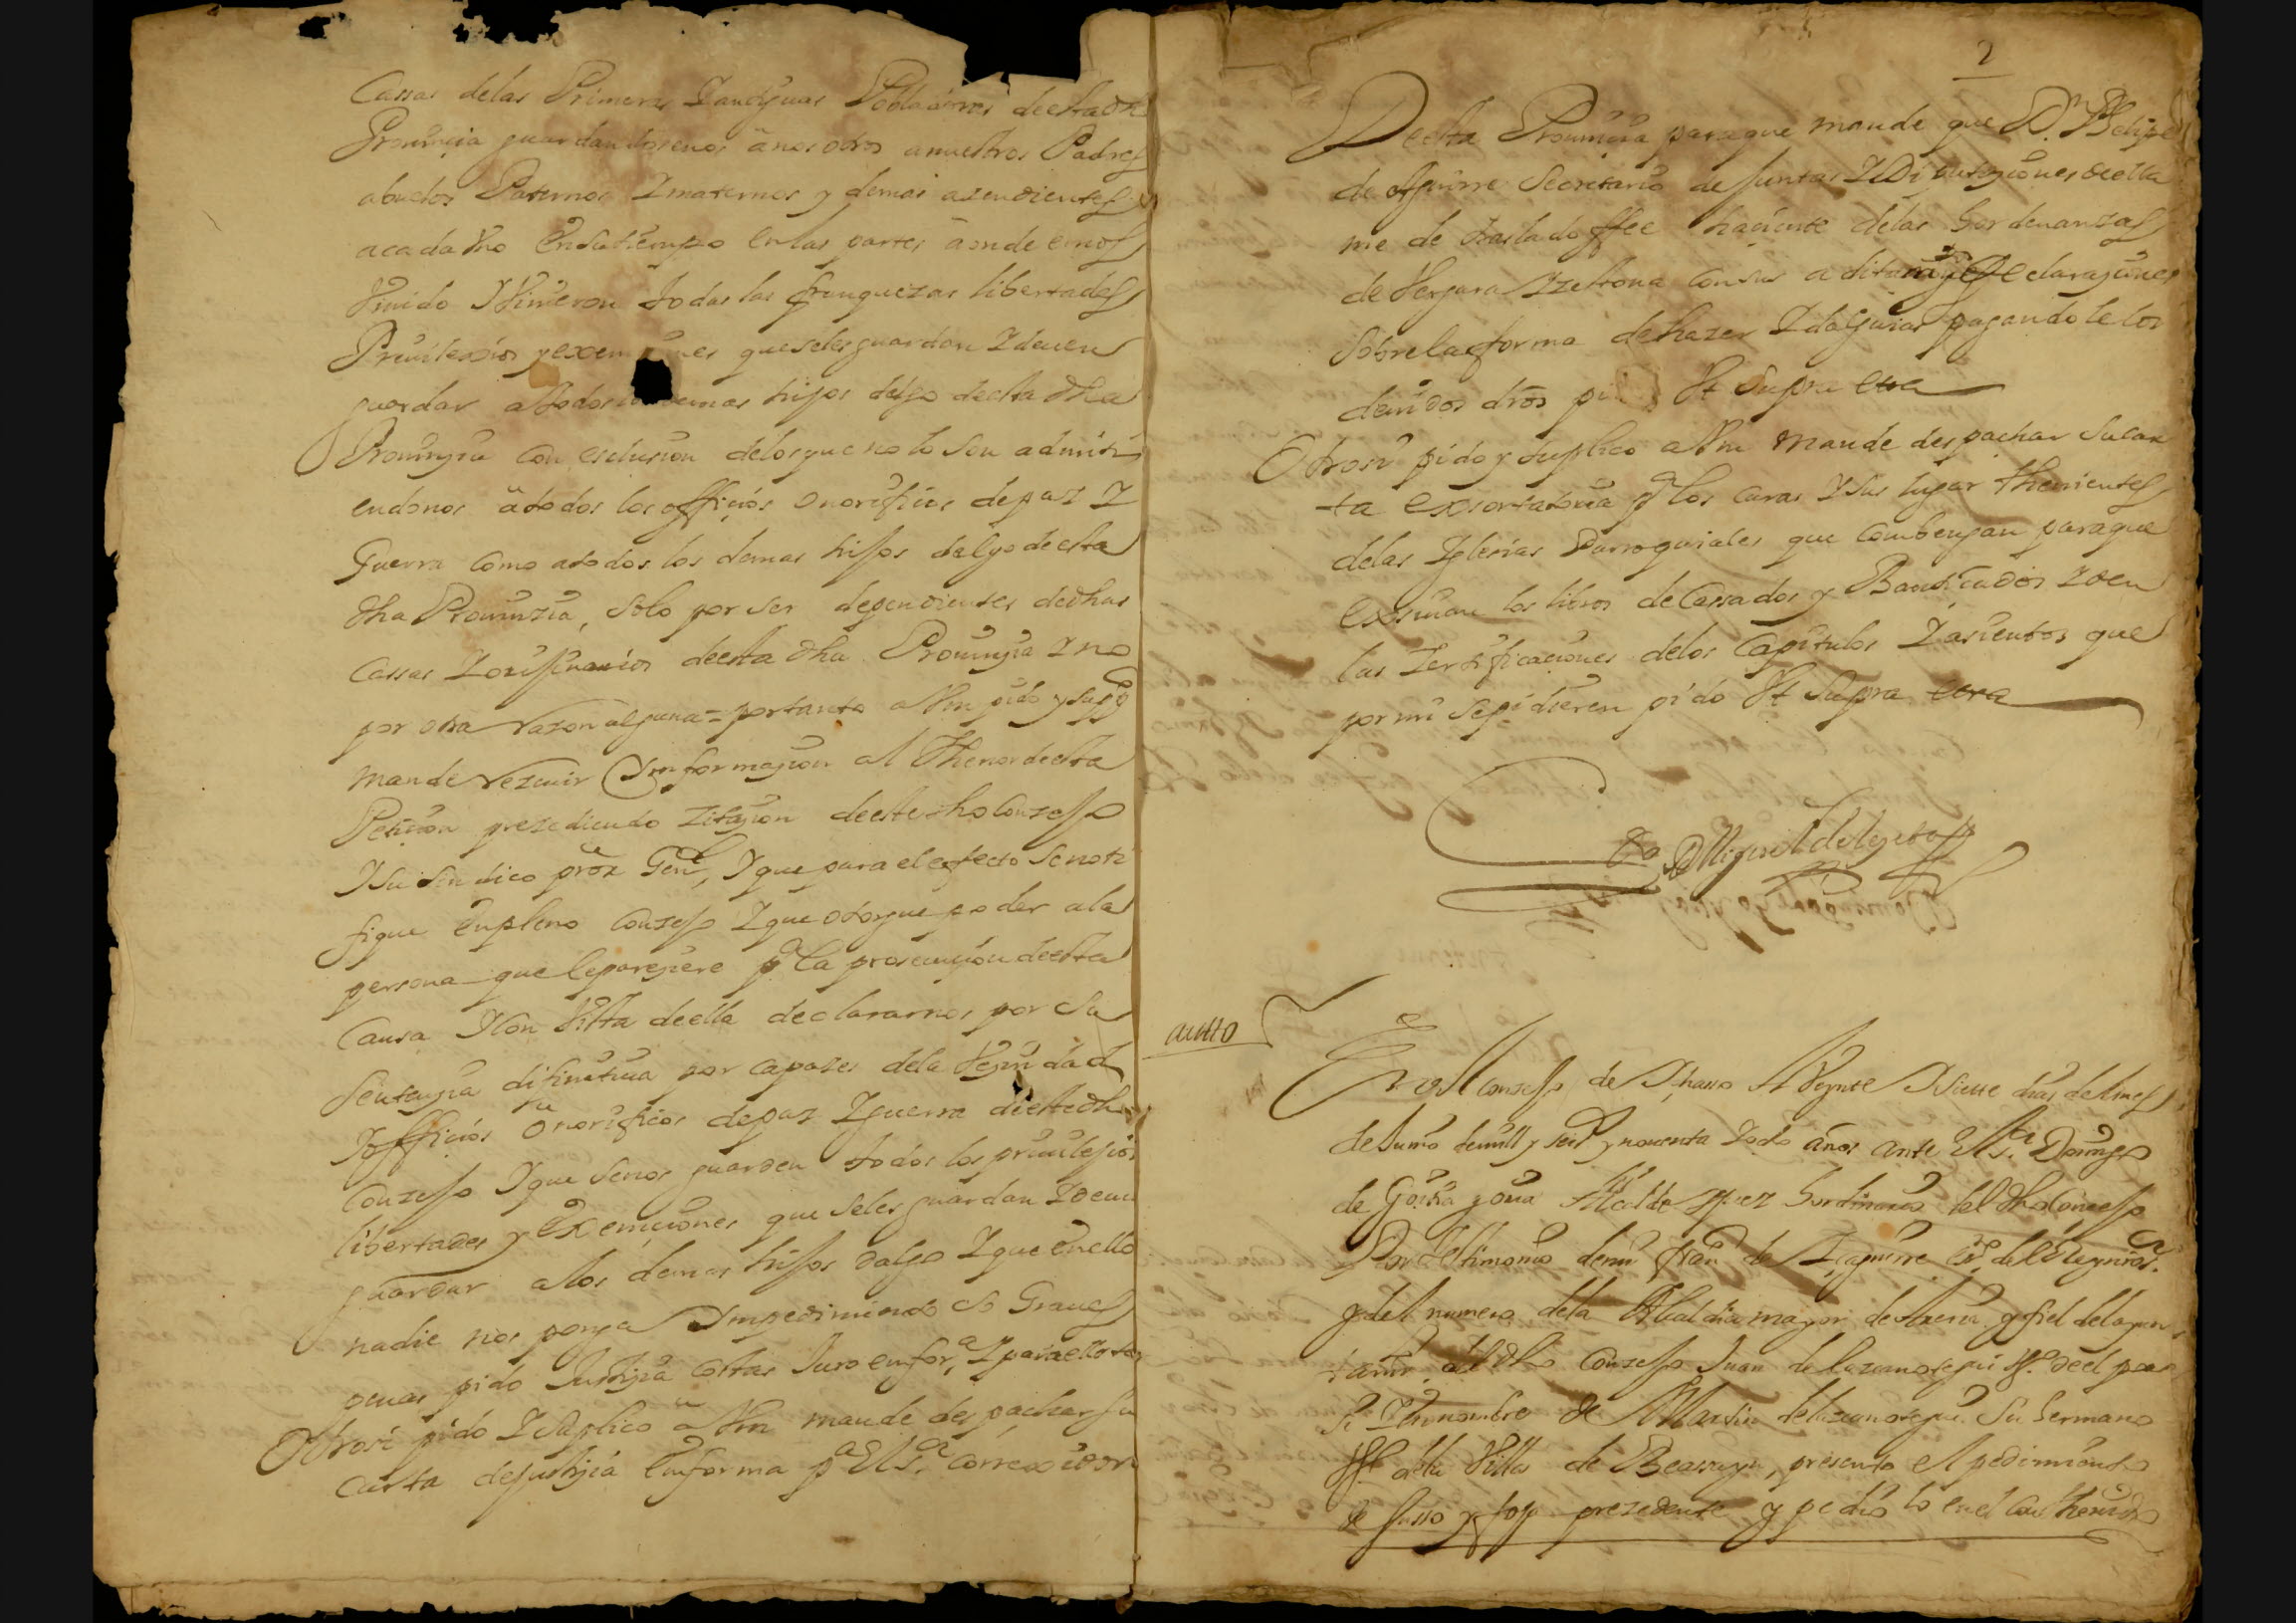 Cassas delas Primeras Y antiguas Poblaciones deesta dha
Prouinçia guardandosenos a nosotros a nuestros Padres
abuelos Paternos Y maternos y demas azendientes
acada Vno en su tiempo en las partes a onde emos
Viuido Y Viuieron todas las franquezas libertades
Preuilexios y exempçiones que seles guardan Y deuen
guardar atodos los demas hijos dalgo deesta dha
Prouinçia con esclusion delos que no lo son admiti
endonos atodos los offiçios onorificos depaz Y
Guerra como atodos los demas hijos dalgo deesta
dha Prouinzia, solo por ser dependientes dedhas
Cassas Y orixinarios deesta dha Prouinçia Y no
por otra razon alguna = portanto aVm pido y supco
mande rezeuir Ynformaçion al thenor deesta
Petiçion prezediendo zitaçion deeste dho Conzejo
Y su sindico pror Genl, Y que para el efecto se noti
fique en pleno Conzejo Y que otorgue poder ala
persona que le pareziere pa la prosecuçion deesta
Causa Y con Vista deella declararnos por su
sentençia difinitiua por capazes dela Vezindad
Y offiçios onorificos depaz Y guerra deeste dho
Conzejo Y que senos guarden todos los preuilexios
libertades y exempçiones que seles guardan Y deuen
guardar alos demas hijos dalgo Y que en ello
nadie nos ponga Ympedimiento so Graues
penas pido Justiçia costas Juro en fora, Y para ello etta
Otrosi pido Y suplico a Vm mande despachar su
carta dejustiçia en forma pa El Sr. Correxidor
2
Deesta Prouinçia paraque mande que Dn. Phelipe
de Aguirre Secretario de Juntas Y Diputaçiones deella
me de traslado ffee haçiente delas hordenanzas
de Vergara Y Zestona con sus aditam Y declaraçiones
Sobre la forma de hazer Ydalguias pagandole los
deuidos dros pi Vt Supra etca
Otrosi pido y suplico aVm mande despachar su car
ta exsortatoria pa los curas Y sus lugar thenientes
delas Yglesias Parroquiales que combengan paraque
exsiuan los libros de Cassados y Bautiçados Y den
las zertificaçiones delos Capitulos Y asientos que
por mi se pidieren pido Vt Supra etca
Auto
En el Conzejo de Y Veynte Y siette dias del mes
de Junio de mill y seisos y nouenta Y ocho años ante el Sr. Domingo
de Alcalde Y Juez hordinario del dho Conçejo
Por testimonio de mi fran de Yzaguirre esno del Rey nro sr.
y del numero dela Alcaldia mayor de y fiel del ayun
tamto. del dho Conzejo Juan de Vo. de el por
si Y en nombre de Martin de su hermano
Vo dela Villa de Beassayn, presento el pedimiento
de susso y foja prezedente y pidio lo en el conthenido